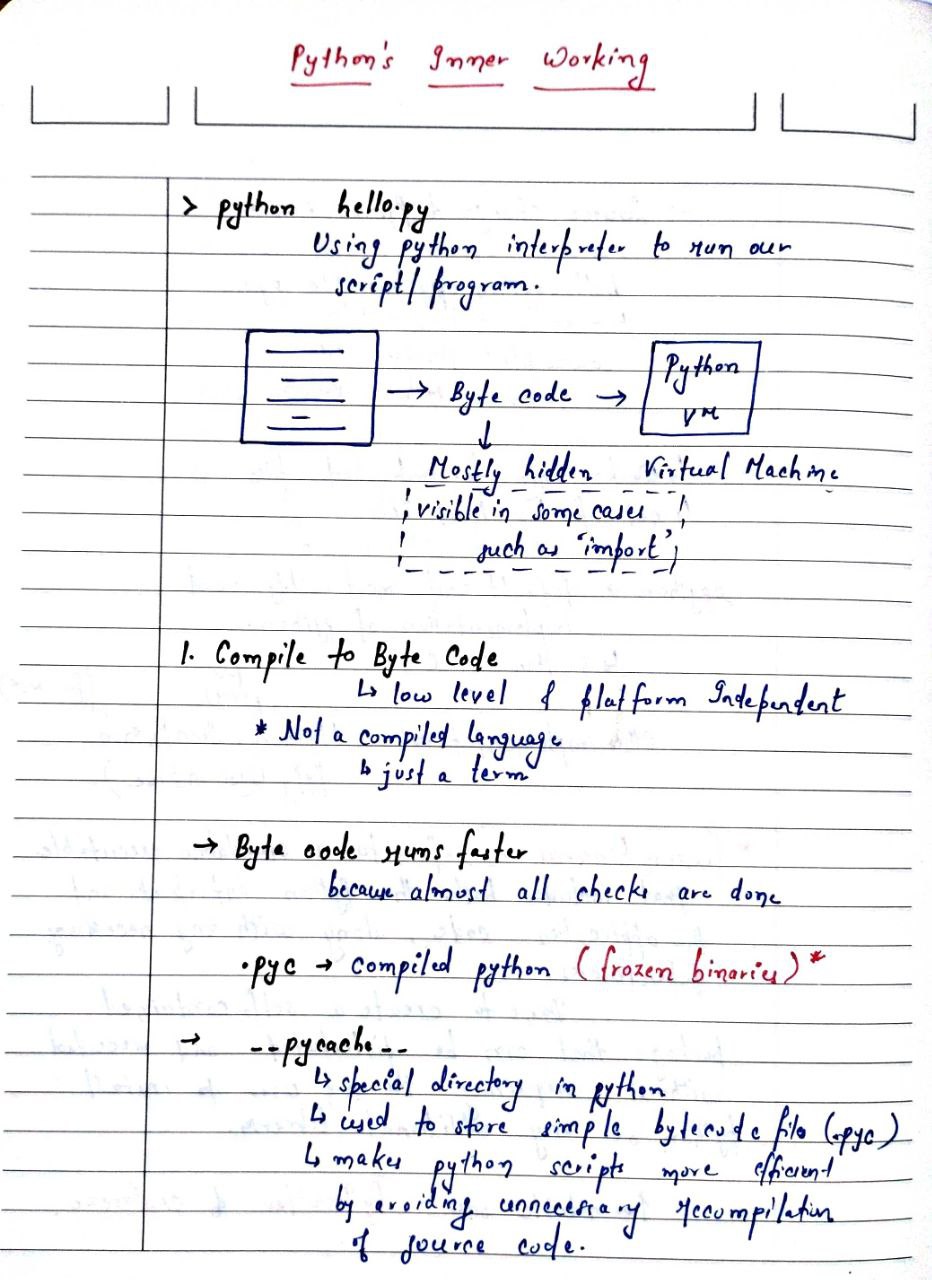 Python's Inner Working
> python hello.py
Using python interpreter to run our
script/ program.
→ Byte code →
Python
VM
↓
Mostly hidden Virtual Machine
visible in some cases
such as 'import'
1. Compile to Byte Code
↳ low level & platform Independent
* Not a compiled language
↳ just a term
→ Byte code runs faster
because almost all checks are done
.pyc → compiled python (frozen binaries)*
→ --pycache--
↳ special directory in python
↳ used to store simple bytecode file (.pyc)
↳ makes python scripts more efficient
by avoiding unnecessary recompilation
of source code.